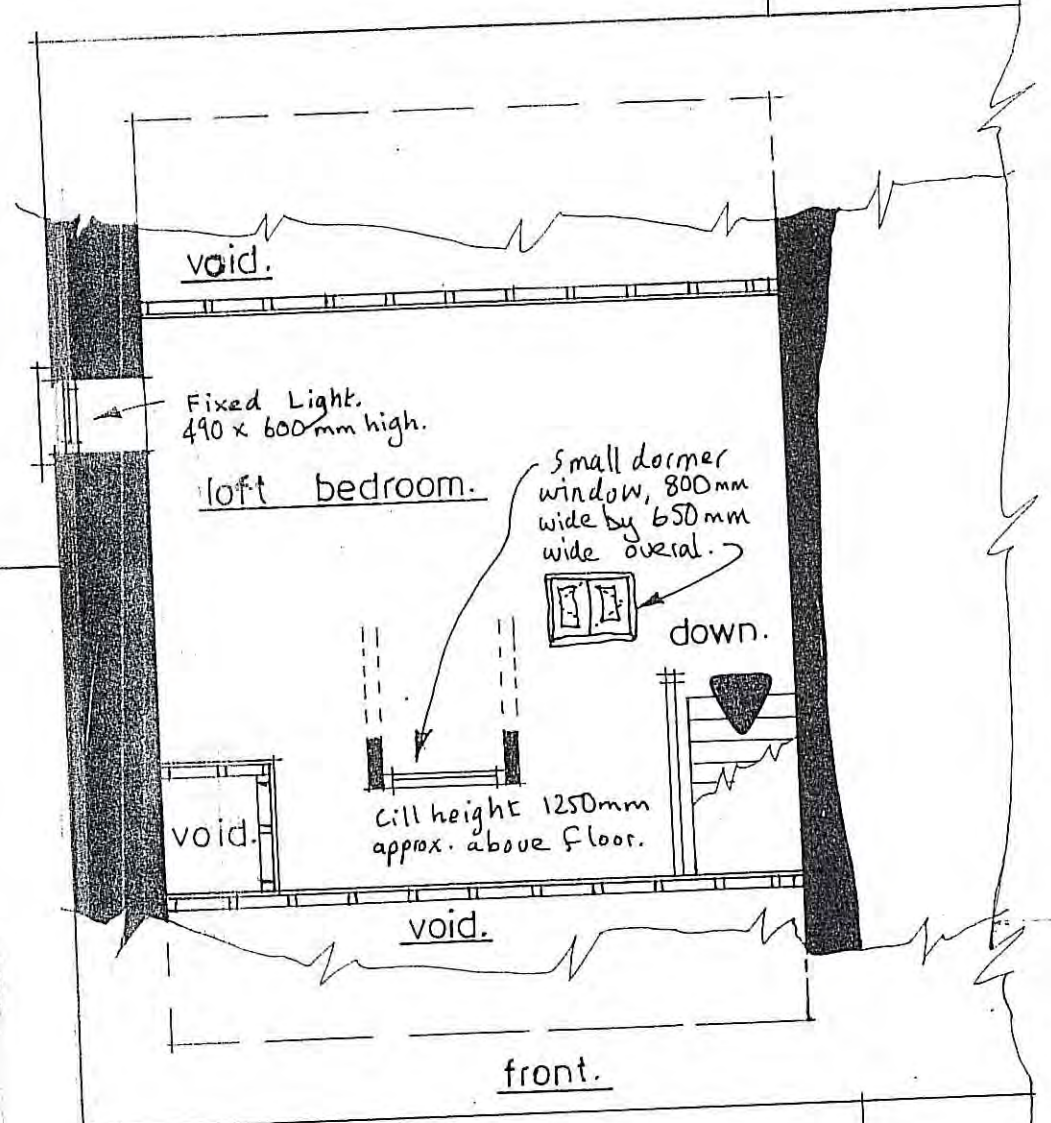 void.
Fixed Light.
490 x 600 mm high.
loft bedroom.
Small dormer
window, 800mm
wide by 650mm
wide overal.
down.
void.
Cill height 1250mm
approx. above floor.
void.
front.